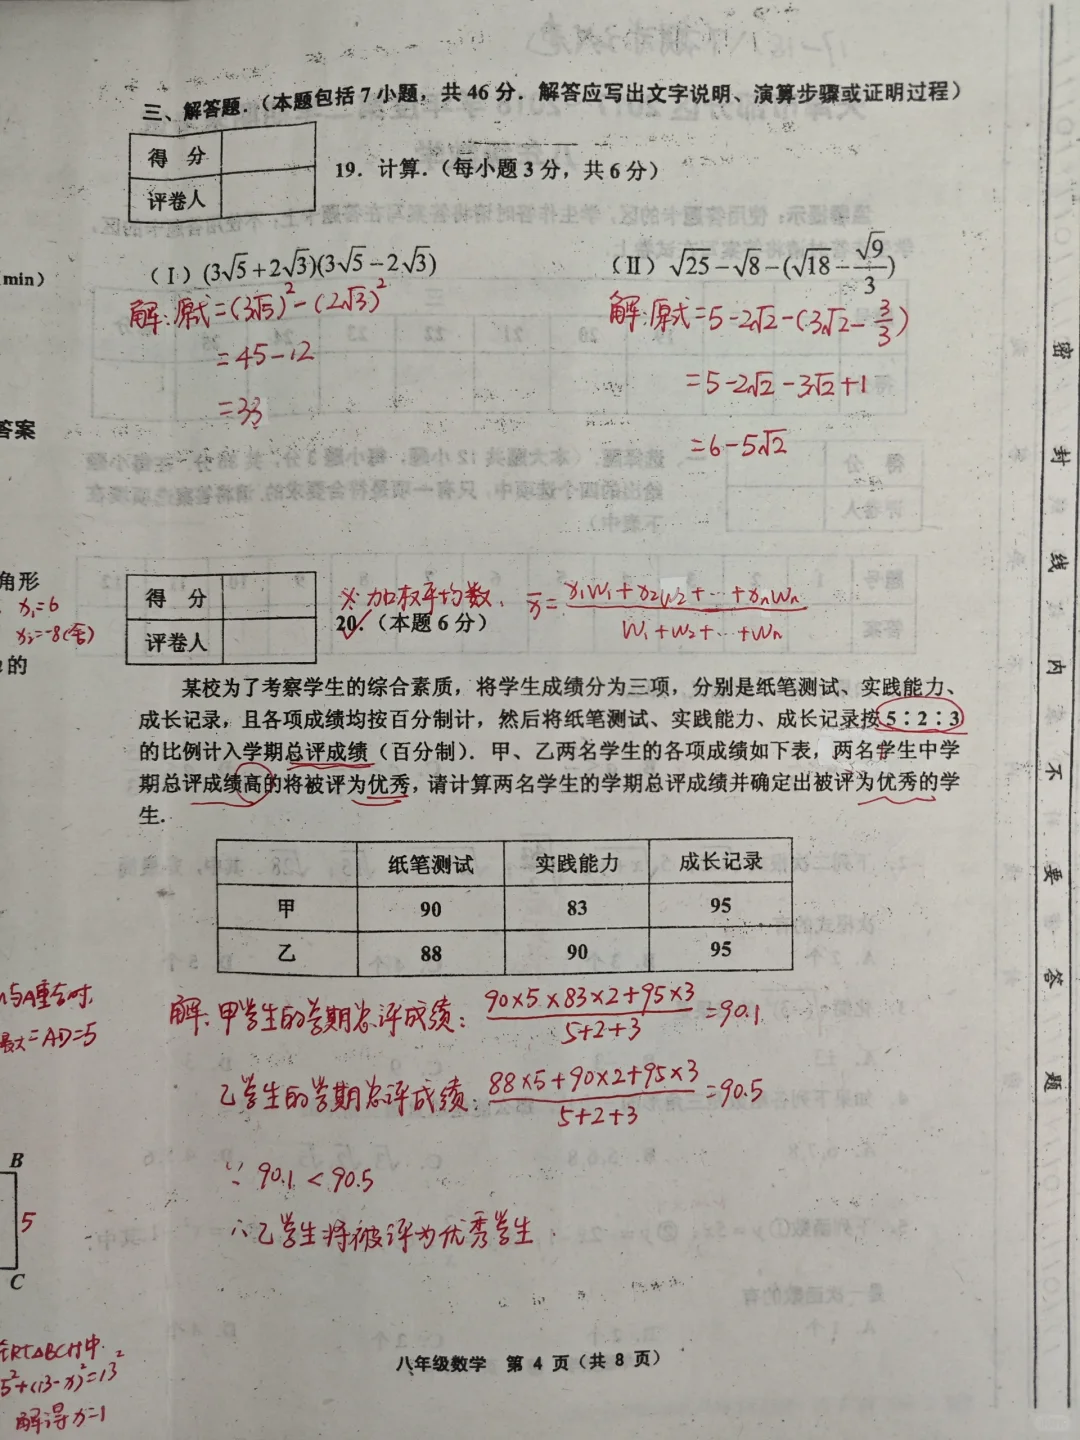 三、解答题.（本题包括7小题，共46分．解答应写出文字说明、演算步骤或证明过程）
得 分
评卷人
19．计算．（每小题3分，共6分）
min）
（Ⅰ）(3√5+2√3)(3√5−2√3)
（Ⅱ）√25−√8−(√18−√9/3)
解:原式=(3√5)²−(2√3)²
=45−12
=33
解:原式=5−2√2−(3√2−3/3)
=5−2√2−3√2+1
=6−5√2
答案
角形
x₁=6
x₂=-8(舍)
的
得 分
评卷人
※加权平均数. x̄=(x₁w₁+x₂w₂+…+xₙwₙ)/(w₁+w₂+…+wₙ)
20.（本题6分）
某校为了考察学生的综合素质，将学生成绩分为三项，分别是纸笔测试、实践能力、
成长记录，且各项成绩均按百分制计，然后将纸笔测试、实践能力、成长记录按5∶2∶3
的比例计入学期总评成绩（百分制）．甲、乙两名学生的各项成绩如下表，两名学生中学
期总评成绩高的将被评为优秀，请计算两名学生的学期总评成绩并确定出被评为优秀的学
生．
纸笔测试 实践能力 成长记录
甲 90 83 95
乙 88 90 95
解:甲学生的学期总评成绩：(90×5×83×2+95×3)/(5+2+3)=90.1
乙学生的学期总评成绩：(88×5+90×2+95×3)/(5+2+3)=90.5
∵90.1<90.5
∴乙学生将被评为优秀学生
与A重合时,
最大=AD=5
B
5
C
在Rt△BCH中
5²+(13-x)²=13²
解得x=1
八年级数学 第4页（共8页）
密 封 线 内 不 要 答 题